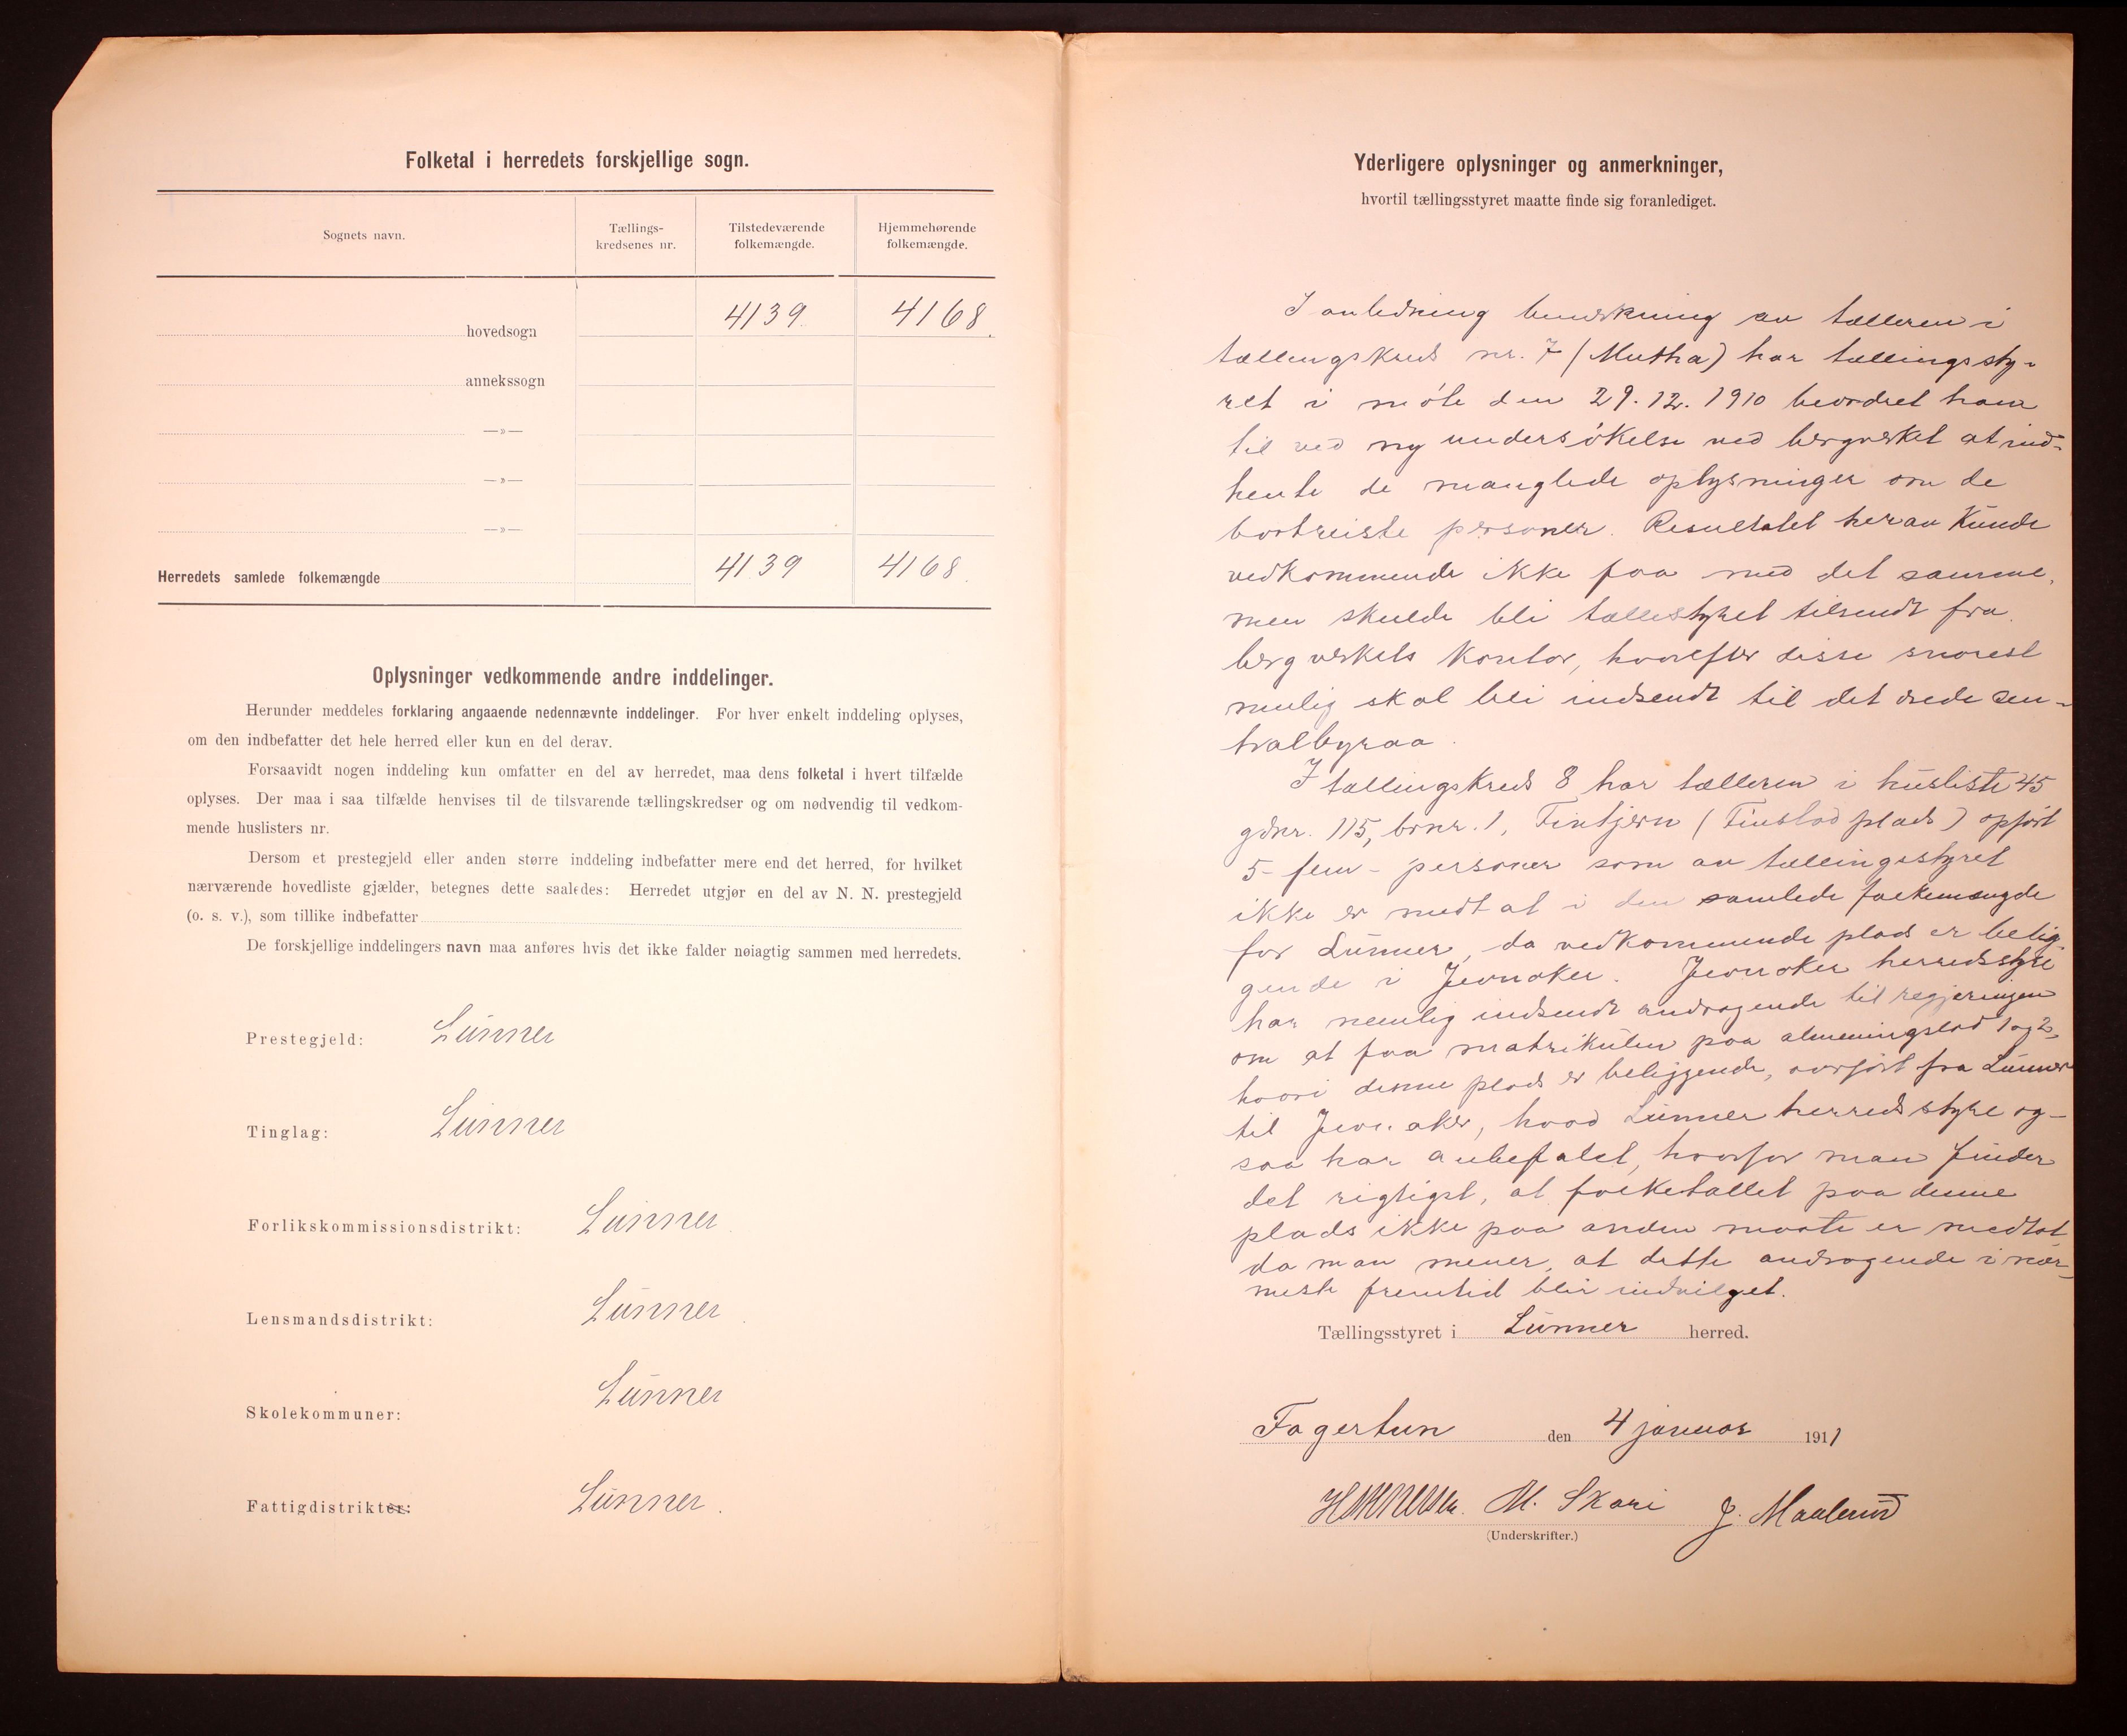 Folketal i herredets forskjellige sogn.
Sognets navn.
Tællings-
kredsenes nr.
Tilstedeværende
folkemængde.
Hjemmehørende
folkemængde.
hovedsogn 4139 4168.
annekssogn
—»—
—»—
—»—
Herredets samlede folkemængde 4139 4168.
Oplysninger vedkommende andre inddelinger.
Herunder meddeles forklaring angaaende nedennævnte inddelinger. For hver enkelt inddeling oplyses,
om den indbefatter det hele herred eller kun en del derav.
Forsaavidt nogen inddeling kun omfatter en del av herredet, maa dens folketal i hvert tilfælde
oplyses. Der maa i saa tilfælde henvises til de tilsvarende tællingskredser og om nødvendig til vedkom-
mende huslisters nr.
Dersom et prestegjeld eller anden større inddeling indbefatter mere end det herred, for hvilket
nærværende hovedliste gjælder, betegnes dette saaledes: Herredet utgjør en del av N. N. prestegjeld
(o. s. v.), som tillike indbefatter
De forskjellige inddelingers navn maa anføres hvis det ikke falder nøiagtig sammen med herredets.
Prestegjeld: Lunner
Tinglag: Lunner
Forlikskommissionsdistrikt: Lunner
Lensmandsdistrikt: Lunner
Skolekommuner: Lunner
Fattigdistrikter: Lunner.
Yderligere oplysninger og anmerkninger,
hvortil tællingsstyret maatte finde sig foranlediget.
I anledning bemerkning av tælleren i
tællingskreds nr. 7 (Mutha) har tællingssty-
ret i møte den 29.12.1910 beordret ham
til ved ny undersøkelse ved bergverket at ind-
hente de manglede oplysninger om de
bortreiste personer. Resultatet herav kunde
vedkommende ikke faa med det samme,
men skulde bli tællestyret tilsendt fra
bergverkets kontor, hvorefter disse snarest
mulig skal bli indsendt til det sen-
tralbyraa.
I tællingskreds 8 har tælleren i husliste 45
gdnr. 115, brnr. 1, Fintjern (plads) opført
5- fem - personer som av tællingsstyret
ikke er medtat i den samlede folkemængde
for Lunner, da vedkommende plads er belig-
gende i Jevnaker. Jevnaker herredsstyre
har nemlig indsendt andragende til regjeringen
om at faa matrikulen paa almeningslod 1 og 2,
hvori denne plads er beliggende, overført fra Lunner
til Jevnaker, hvad Lunner herredsstyre og-
saa har anbefalet, hvorfor man finder
det rigtigst, at folketallet paa denne
plads ikke paa anden maate er medtat
da man mener, at dette andragende i nær-
meste fremtid blir indvilget.
Tællingsstyret i Lunner herred.
Fagertun den 4 januar 1911
M. Skari J. Maalerud
(Underskrifter.)